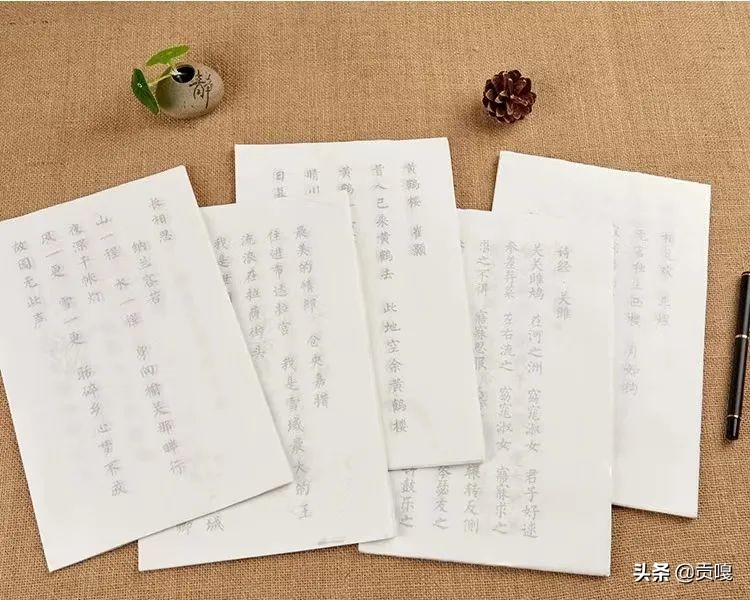 静
长相思
纳兰容若
山一程 水一程 身向榆关那畔行
夜深千帐灯
风一更 雪一更 聒碎乡心梦不成
故园无此声
最美的情郎 仓央嘉措
住进布达拉宫 我是雪域最大的王
流浪在拉萨街头
我是
城
黄鹤楼 崔颢
昔人已乘黄鹤去 此地空余黄鹤楼
黄鹤一
晴川
日暮
诗经·关雎
关关雎鸠 在河之洲 窈窕淑女 君子好逑
参差荇菜 左右流之 窈窕淑女 寤寐求之
求之不得 寤寐思服
辗转反侧
琴瑟友之
钟鼓乐之
相见欢
无言独上西楼 月如钩
头条 @贡嘎